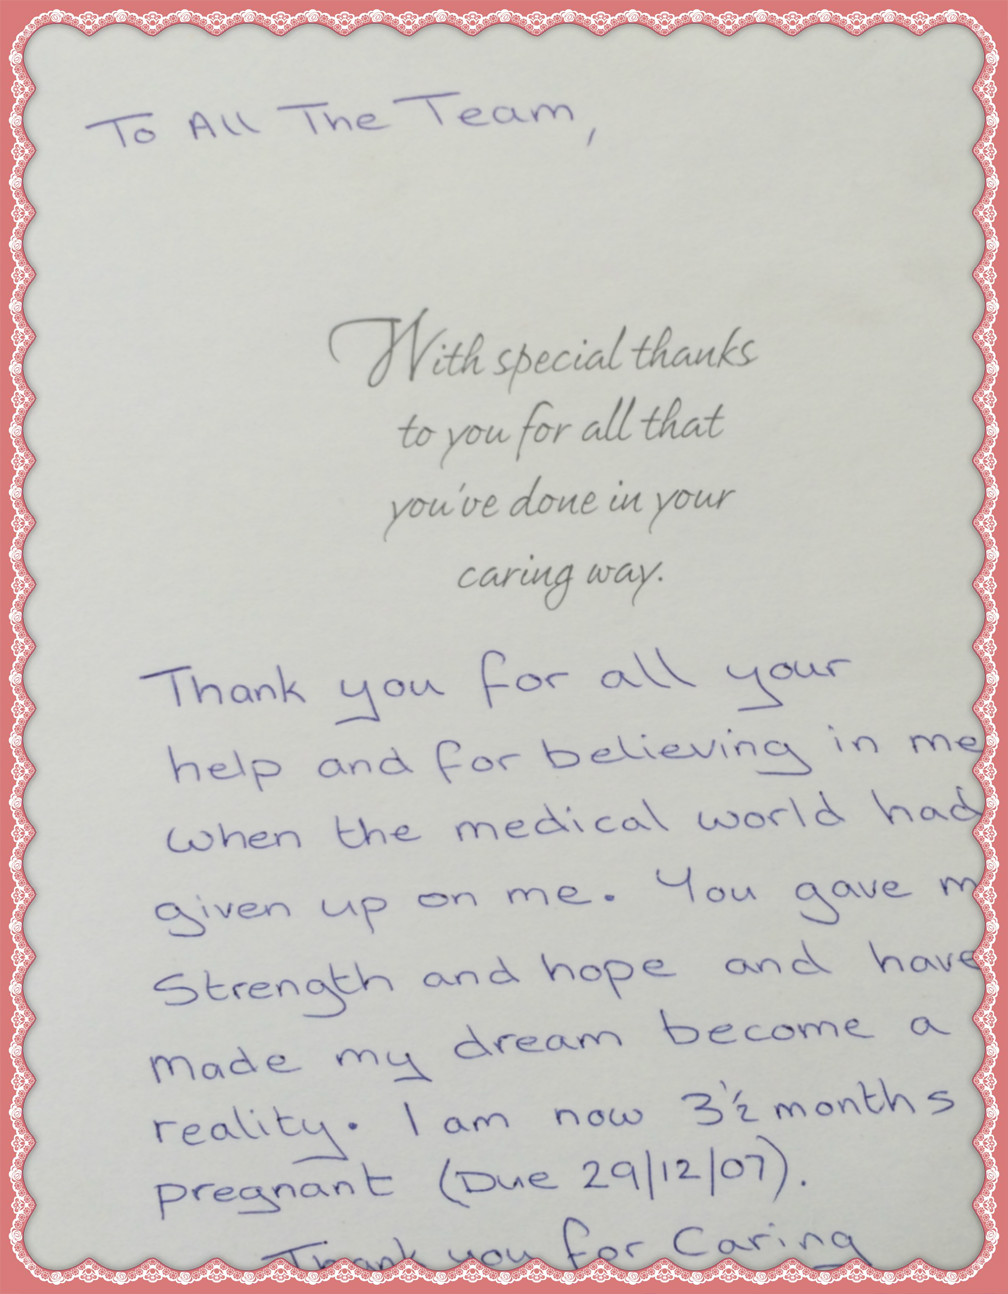 To All The Team,
With special thanks
to you for all that
you've done in your
caring way.
Thank you for all your
help and for believing in me
when the medical world had
given up on me. You gave m
Strength and hope and have
made my dream become a
reality. I am now 3½ months
pregnant (Due 29/12/07).
Thank you for Caring